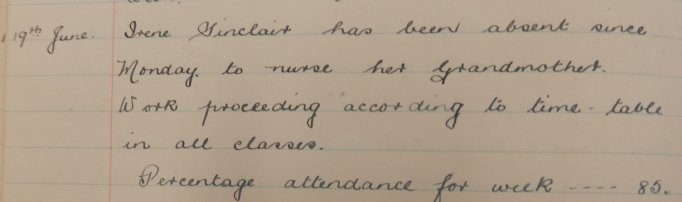 19th June. Irene Sinclair has been absent since
Monday, to nurse her Grandmother.
Work proceeding according to time-table
in all classes.
Percentage attendance for week ---- 85.